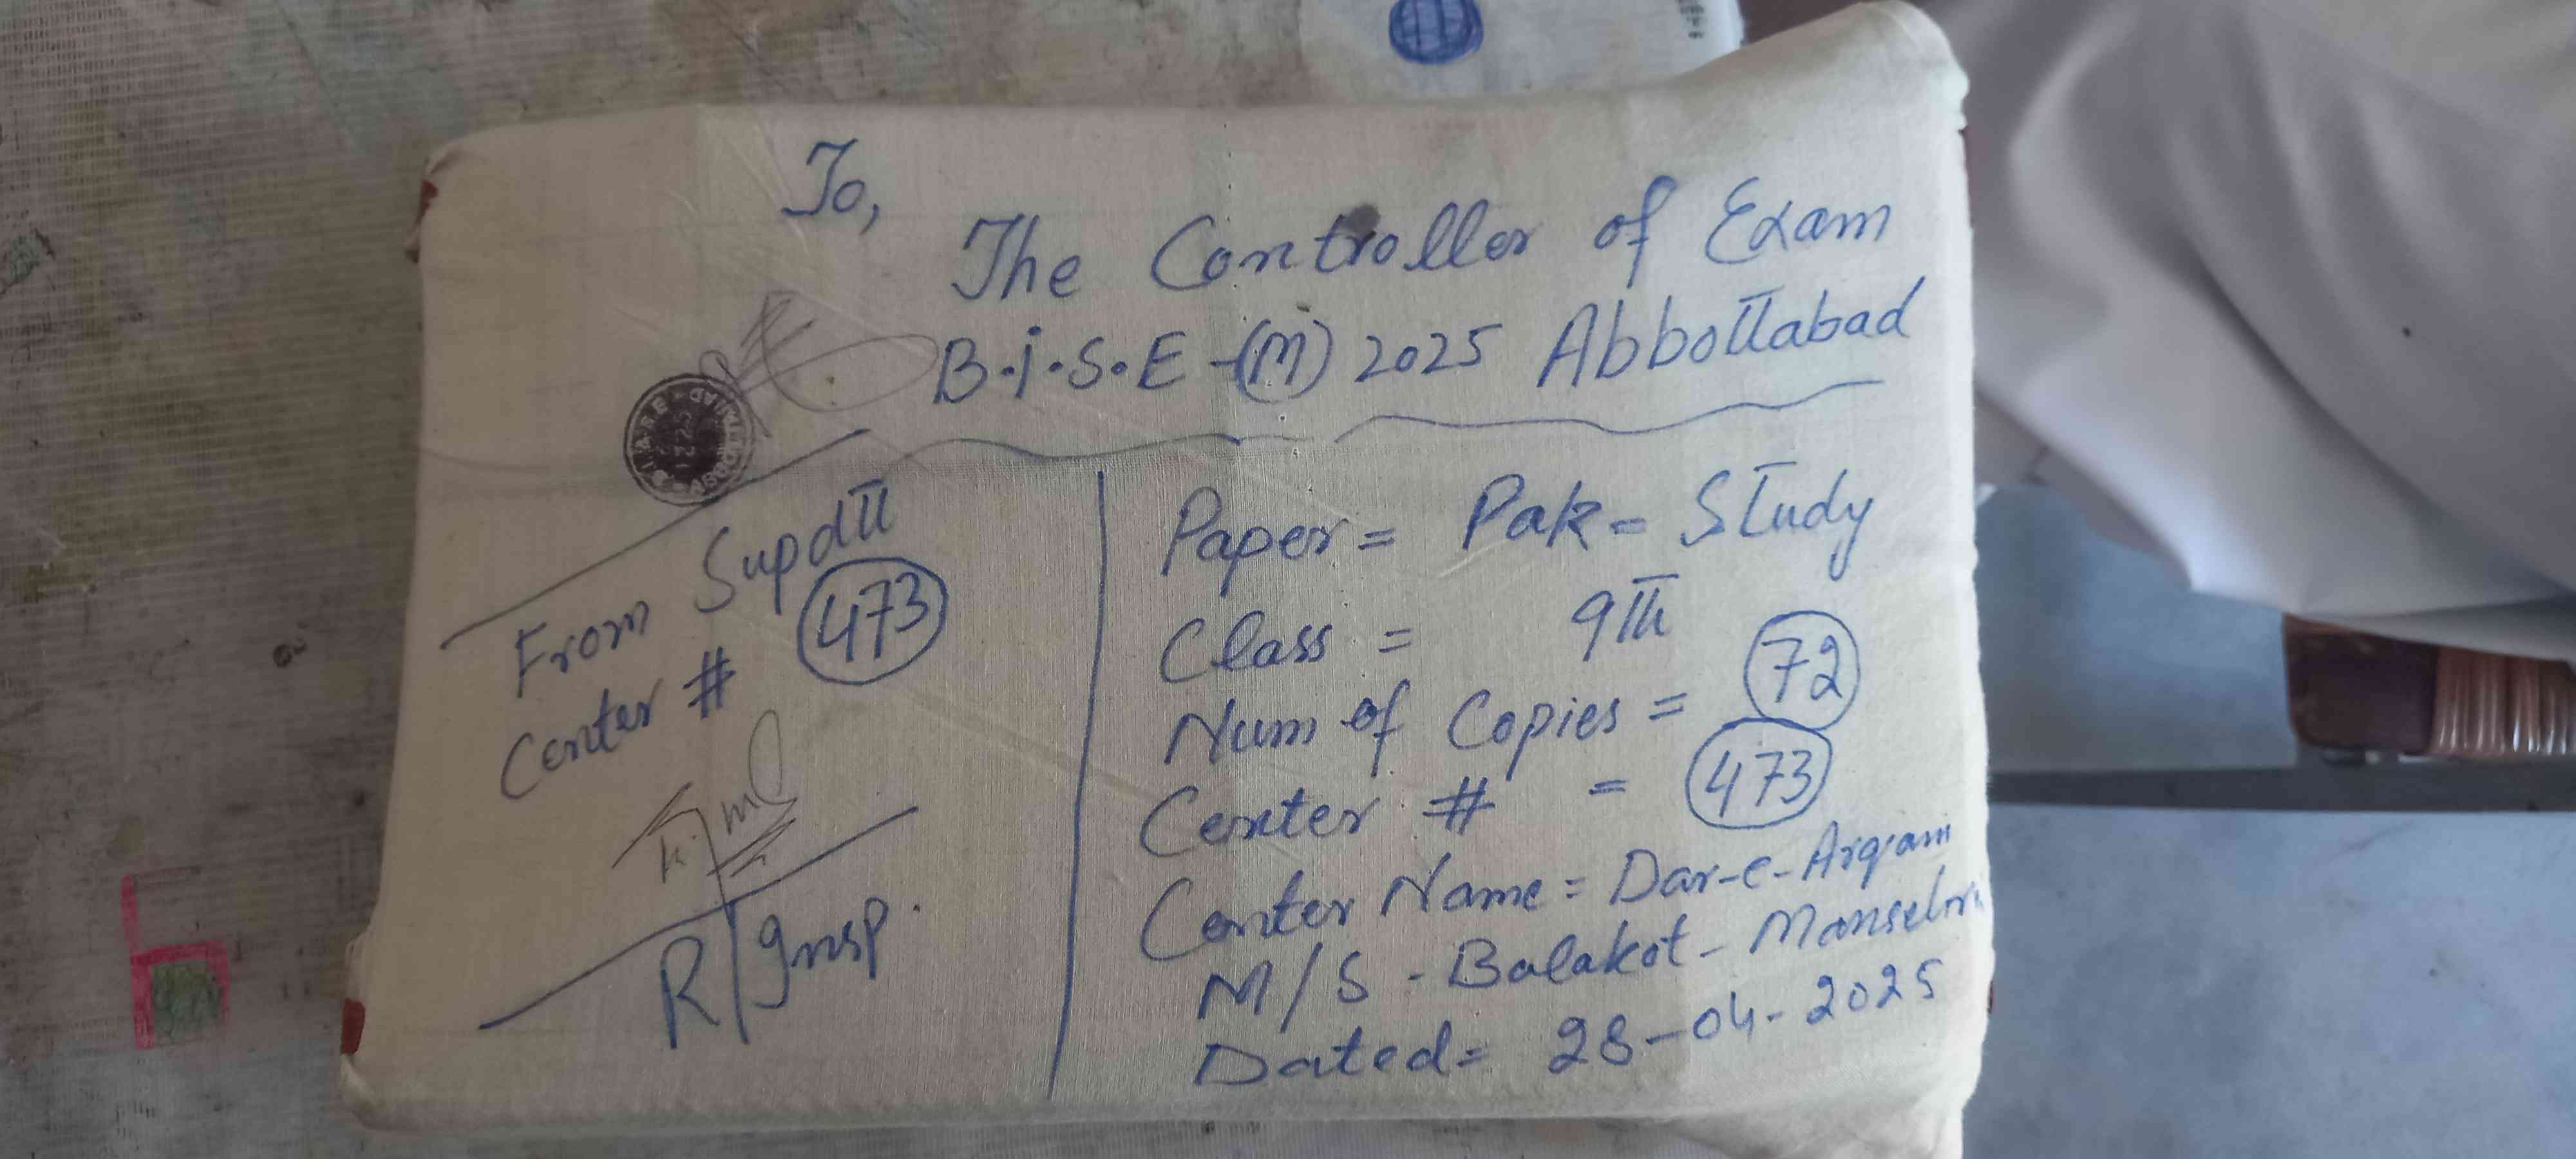 To,
The Controller of Exam
B.i.S.E-(M) 2025 Abbottabad
From Supdtt
Center # 473
R/Insp.
Paper = Pak-Study
Class = 9th
Num of Copies = 72
Center # = 473
Center Name = Dar-e-Arqam
M/S - Balakot - Mansehra
Dated = 28-04-2025